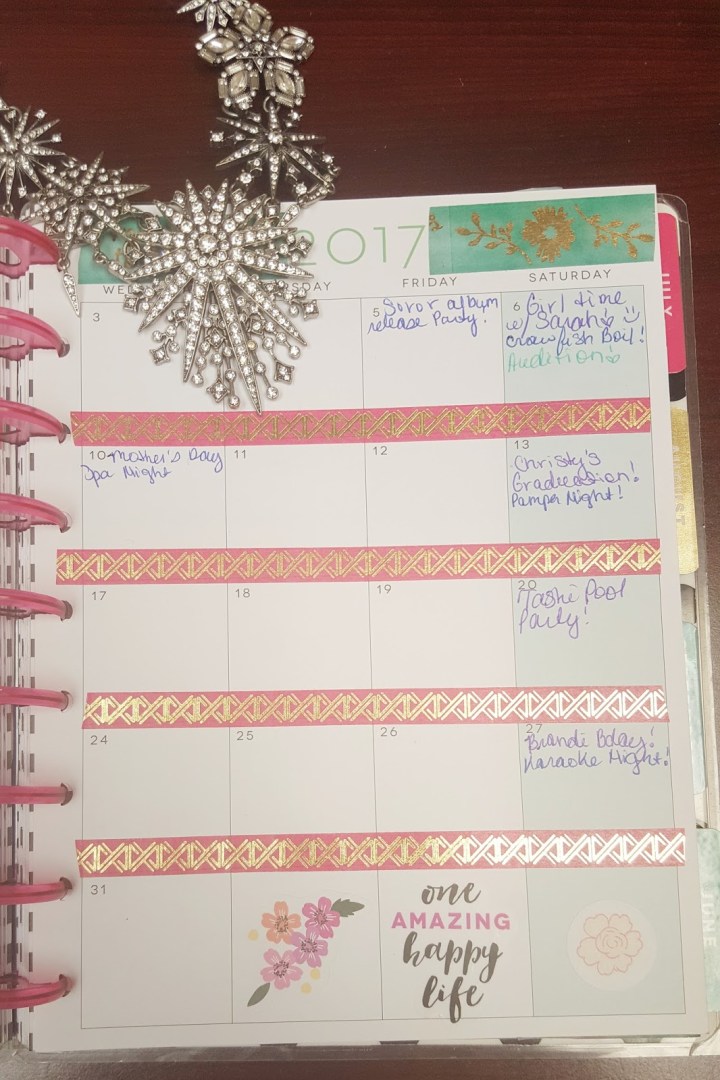 2017
FRIDAY
SATURDAY
3
5 Soror album
release Party!
6 Girl time
w/ Sarah!
Crawfish Boil!
Audition
10 Mother's Day
Spa Night
11
12
13
Christy's
Graduation!
Pampa Night!
17
18
19
20
Pool
Party!
24
25
26
27
Brandi Bday!
Karaoke Night!
31
one
AMAZING
happy
life
JULY
JUNE